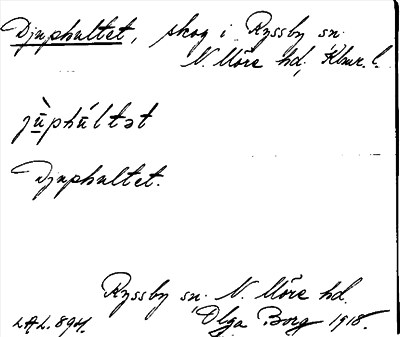 Djuphultet, skog i Ryssby sn.
N. Möre hd, Klmr. l.
jùphúltət
Djuphultet.
Ryssby sn. N. Möre hd.
L.A.L. 894. Olga Borg 1918.